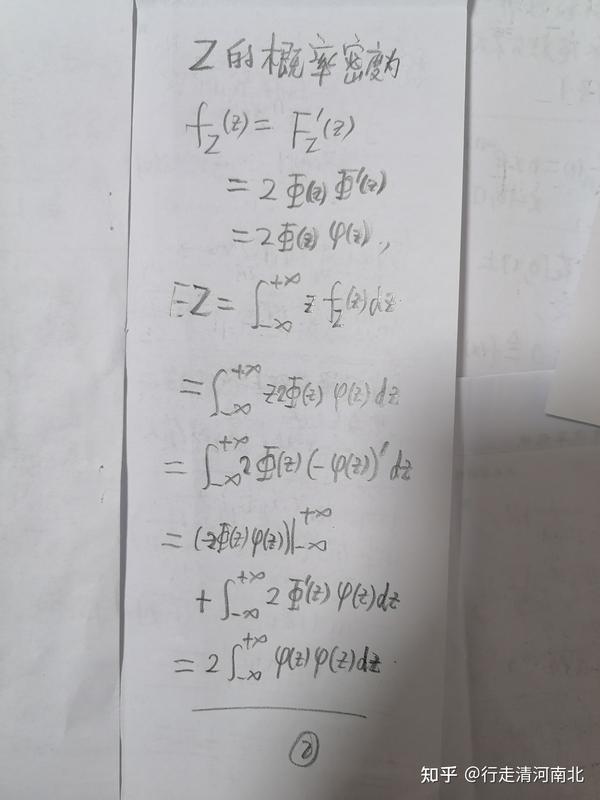 Z的概率密度为
f_Z(z) = F_Z'(z)
= 2Φ(z)Φ'(z)
= 2Φ(z)φ(z),
EZ = ∫_{-∞}^{+∞} z f_Z(z)dz
= ∫_{-∞}^{+∞} z2Φ(z)φ(z)dz
= ∫_{-∞}^{+∞} 2Φ(z)(-φ(z))'dz
= (-2Φ(z)φ(z))|_{-∞}^{+∞}
+ ∫_{-∞}^{+∞} 2Φ'(z)φ(z)dz
= 2∫_{-∞}^{+∞} φ(z)φ(z)dz.
②
知乎 @行走清河南北